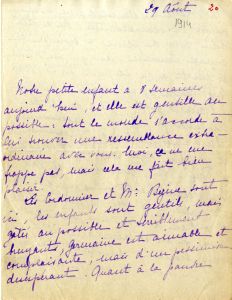 29 Août
20
1914
Notre petite enfant a 8 semaines
aujourd'hui, et elle est gentille au
possible: tout le monde s'accorde à
lui trouver une ressemblance extra-
ordinaire avec vous. Moi, ça ne me
frappe pas, mais cela me fait bien
plaisir.
Les Cordonnier et Mr
sont
ici, les enfants sont gentils, mais
gâtés au possible et terriblement
bruyants, Germaine est aimable et
complaisante, mais d'un pessimisme
désespérant. Quant à la pauvre